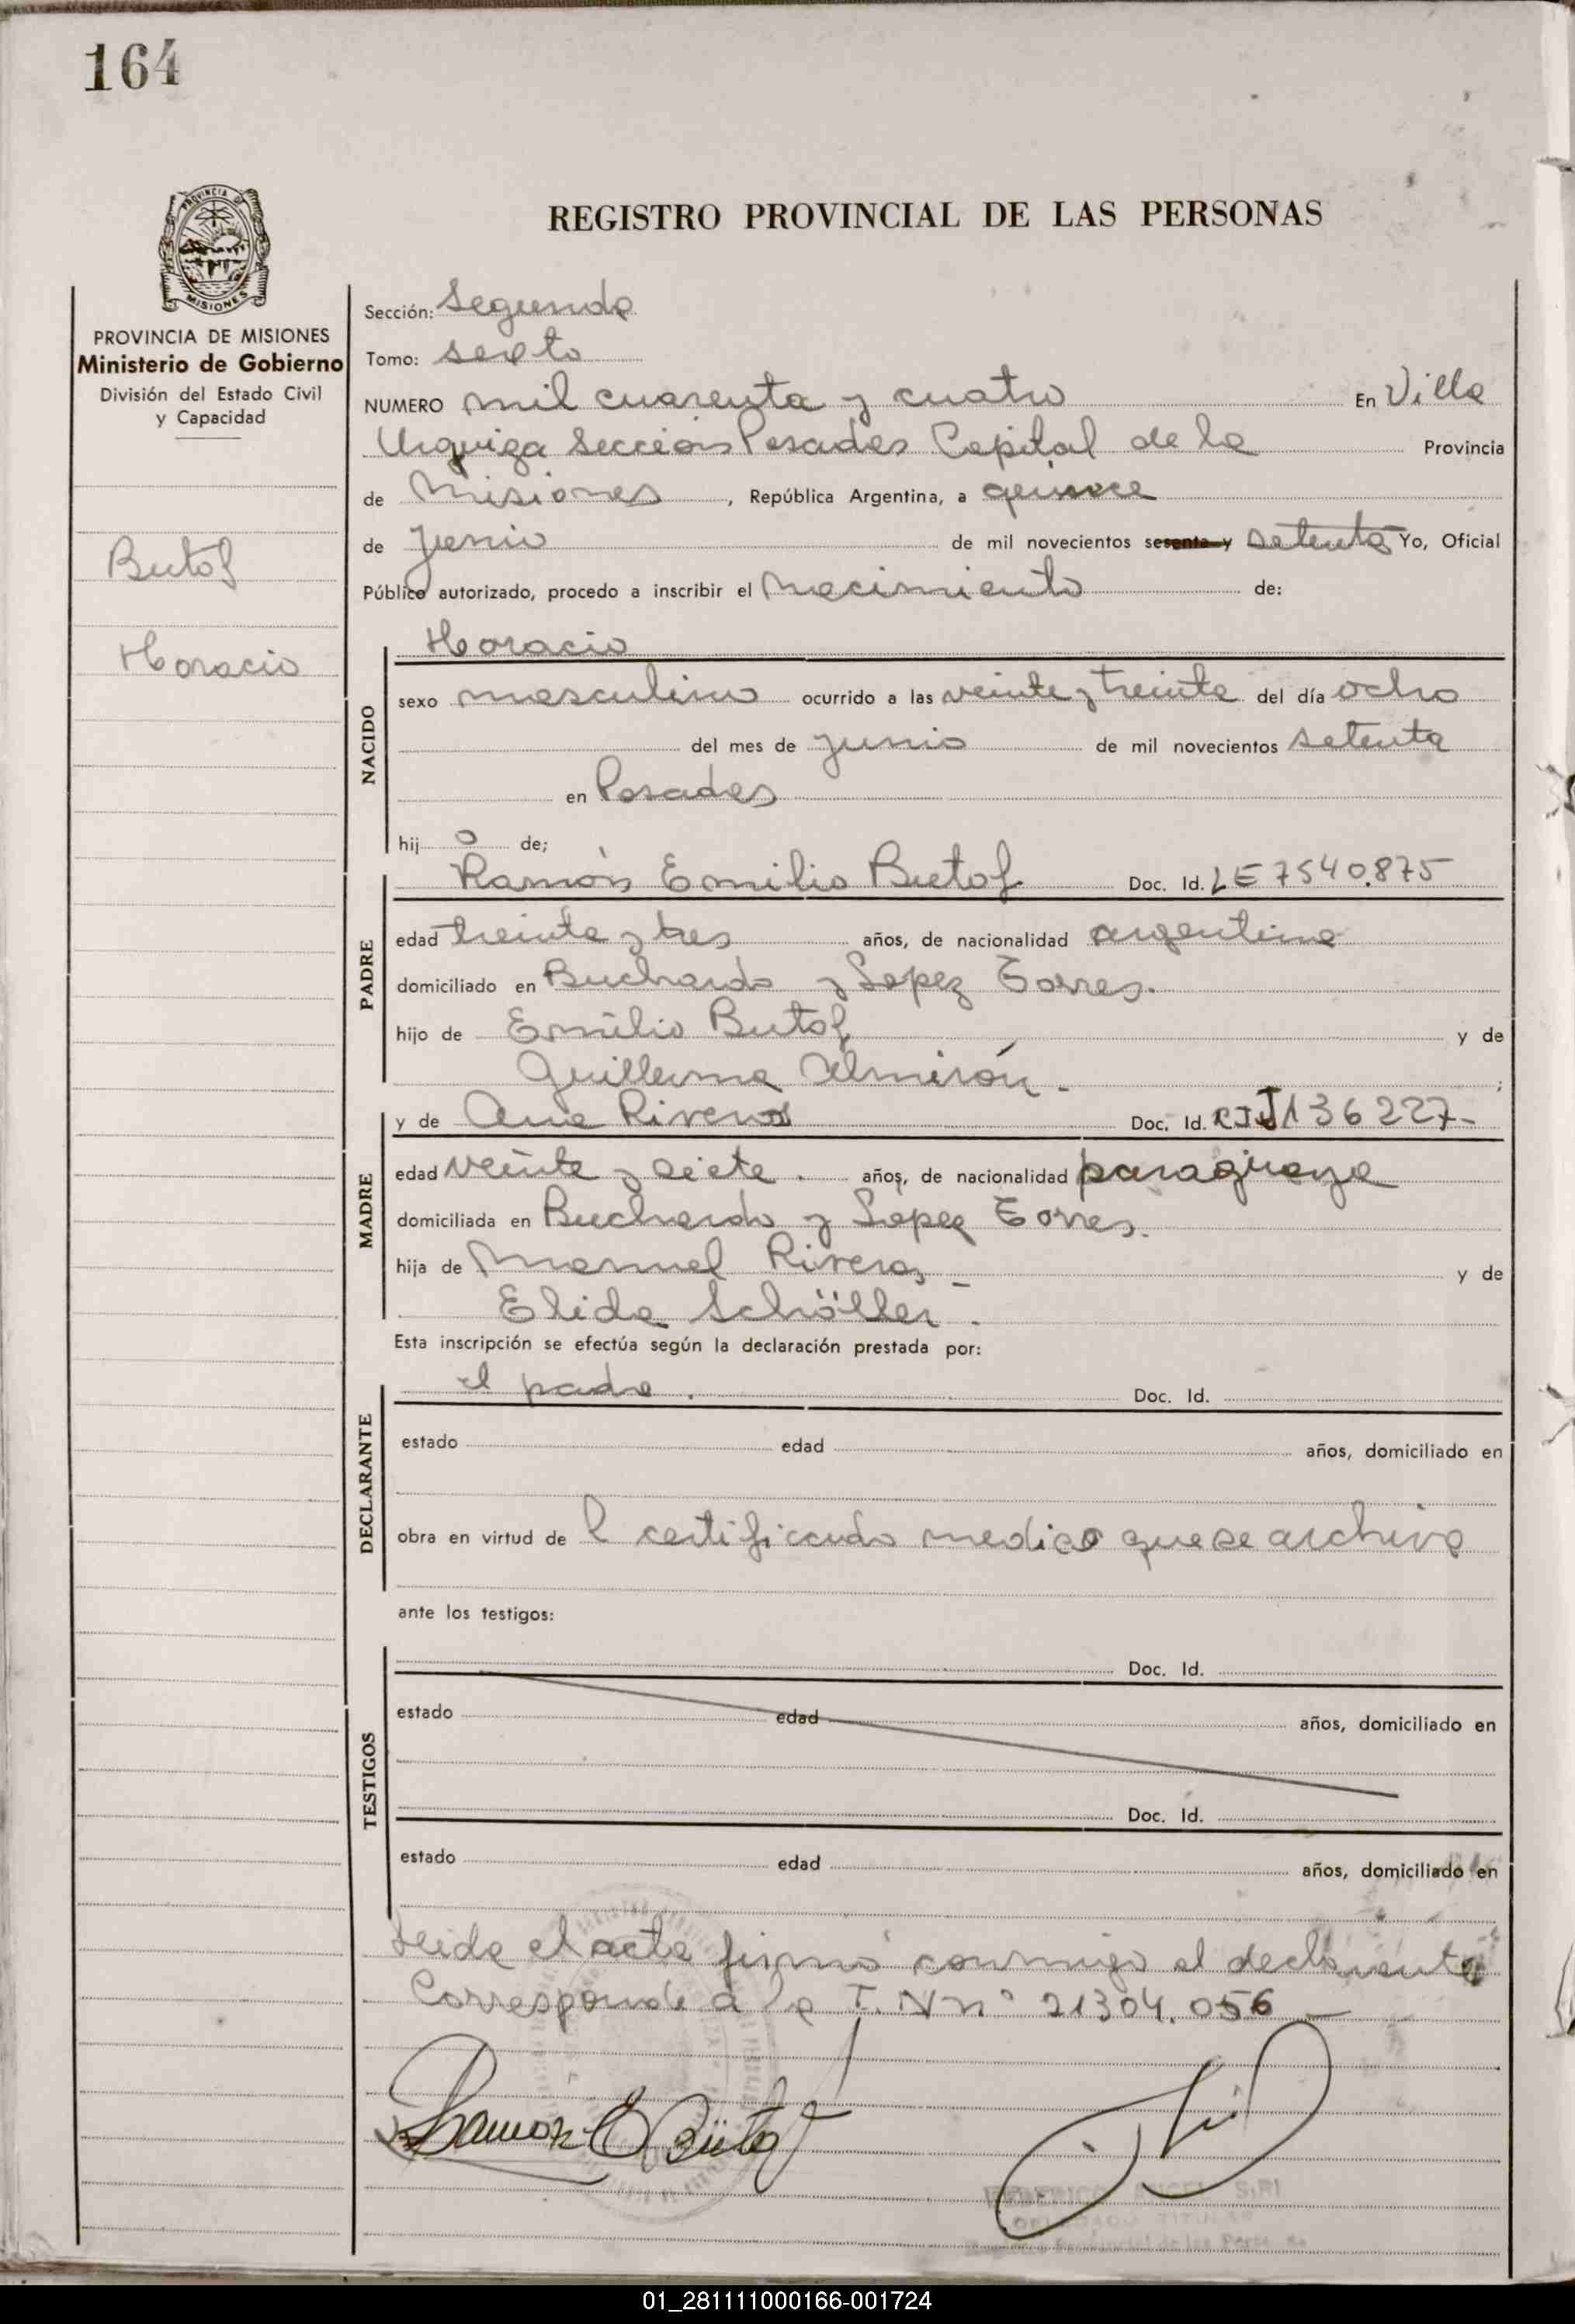 164
PROVINCIA
MISIONES
REGISTRO PROVINCIAL DE LAS PERSONAS
PROVINCIA DE MISIONES
Ministerio de Gobierno
División del Estado Civil
y Capacidad
Butof
Horacio
Sección: Segunda
Tomo: sexto
NUMERO mil cuarenta y cuatro En Villa
Urquiza Sección Posadas Capital de la Provincia
de Misiones, República Argentina, a quince
de Junio de mil novecientos sesenta y setenta Yo, Oficial
Público autorizado, procedo a inscribir el nacimiento de:
NACIDO
Horacio
sexo masculino ocurrido a las veinte y treinta del día ocho
del mes de junio de mil novecientos setenta
en Posadas
hijo de;
PADRE
Ramón Emilio Butof Doc. Id. LE 7540.875
edad treinta y tres años, de nacionalidad argentina
domiciliado en Buchardo y Lopez Torres.
hijo de Emilio Butof y de
Guillerma Almirón.- ;
MADRE
y de Ana Riveros Doc. Id. 136227-
edad veinte y siete. años, de nacionalidad paragüaya
domiciliada en Buchardo y Lopez Torres.
hija de Manuel Riveros - y de
Elida Schöller.-
Esta inscripción se efectúa según la declaración prestada por:
DECLARANTE
el padre. Doc. Id.
estado edad años, domiciliado en
obra en virtud de l certificado medico que se archiva
ante los testigos:
TESTIGOS
Doc. Id.
estado edad años, domiciliado en
Doc. Id.
estado edad años, domiciliado en
Leida el acta firmó conmigo el declarante
Corresponde a la T. N nº 21304.056 -
Ramon E Bütof
FEDERICO ANGEL SIRI
DELEGADO TITULAR
Registro Provincial de las Personas
01_281111000166-001724